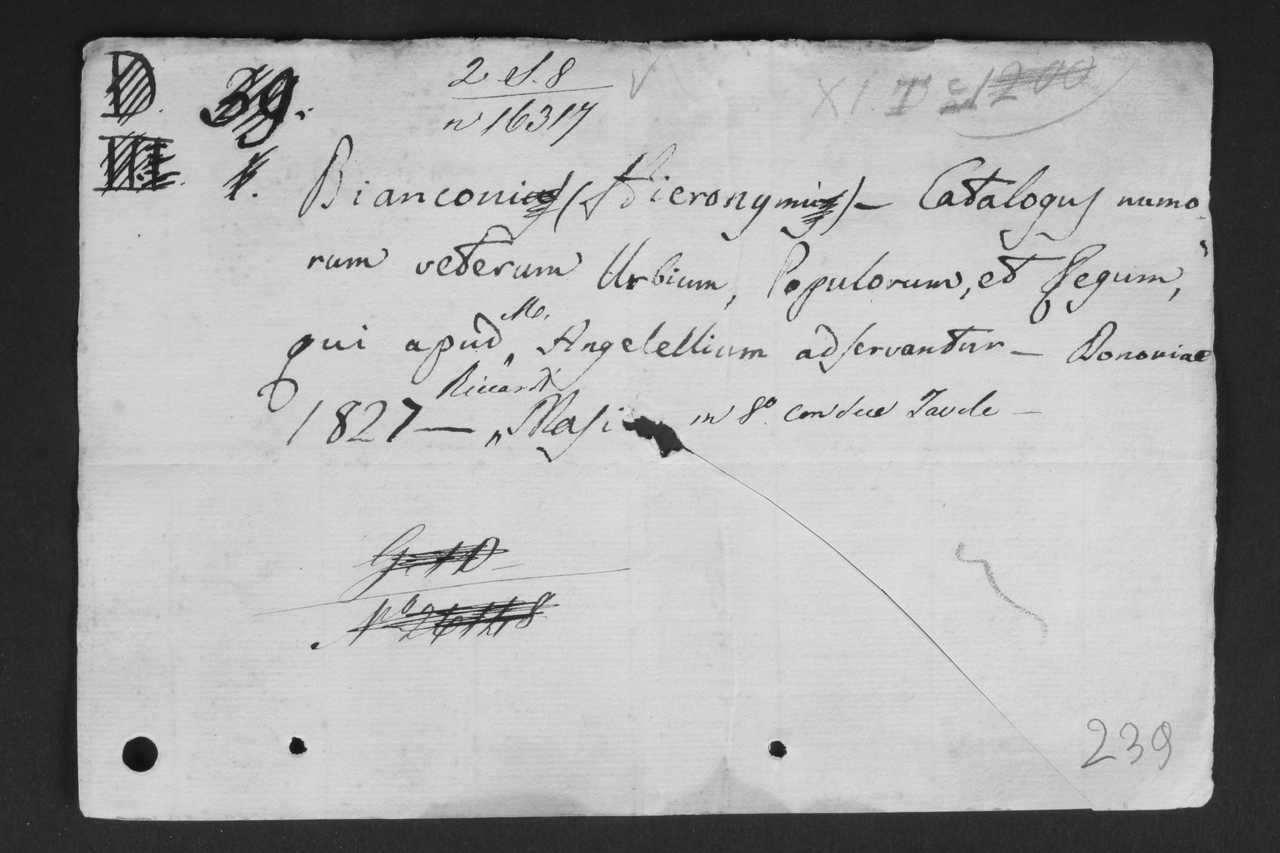 D. 39.
2 el. 8
n 16317
XI. D c 1200
III. 1.
Bianconi (Hieronymi) – Catalogus numo
rum veterum Urbium, Populorum, et Regum,
qui apud M. Angelellium adservantur – Bononiae
1827 – Riccardi Masi in 8o. con due Tavole –
No 26448
239